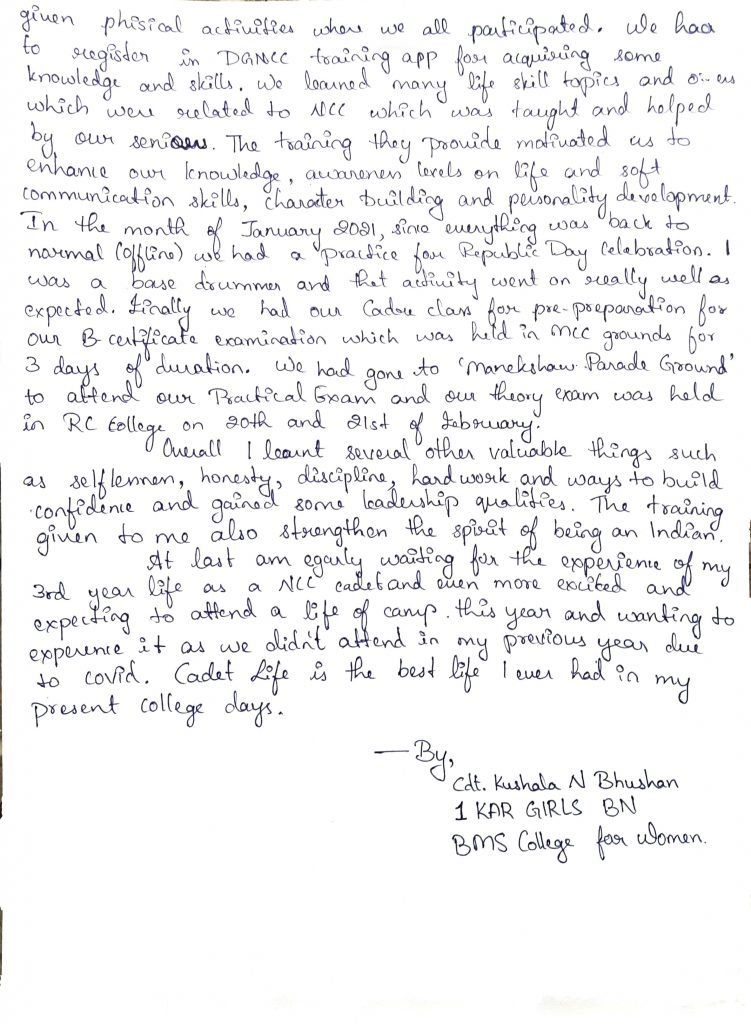 given phisical activities where we all participated. We had
to register in DGNCC training app for acquiring some
knowledge and skills. We learned many life skill topics and
which were related to NCC which was taught and helped
by our seniors. The training they provide motivated us to
enhance our knowledge, awareness levels on life and soft
communication skills, character building and personality development.
In the month of January 2021, since everything was back to
normal (offline) we had a practice for Republic Day Celebration. I
was a base drummer and that activity went on really well as
expected. Finally we had our Cadre class for pre-preparation for
our B-certificate examination which was held in MCC grounds for
3 days of duration. We had gone to 'Manekshaw Parade Ground'
to attend our Practical Exam and our theory exam was held
in RC College on 20th and 21st of February.
Overall I learnt several other valuable things such
as selflessness, honesty, discipline, hardwork and ways to build
confidence and gained some leadership qualities. The training
given to me also strengthen the spirit of being an Indian.
At last am egarly waiting for the experience of my
3rd year life as a NCC cadet and even more excited and
expecting to attend a life of camp. this year and wanting to
experience it as we didn't attend in my previous year due
to covid. Cadet Life is the best life I ever had in my
present college days.
— By,
Cdt. Kushala N Bhushan
1 KAR GIRLS BN
BMS College for Women.